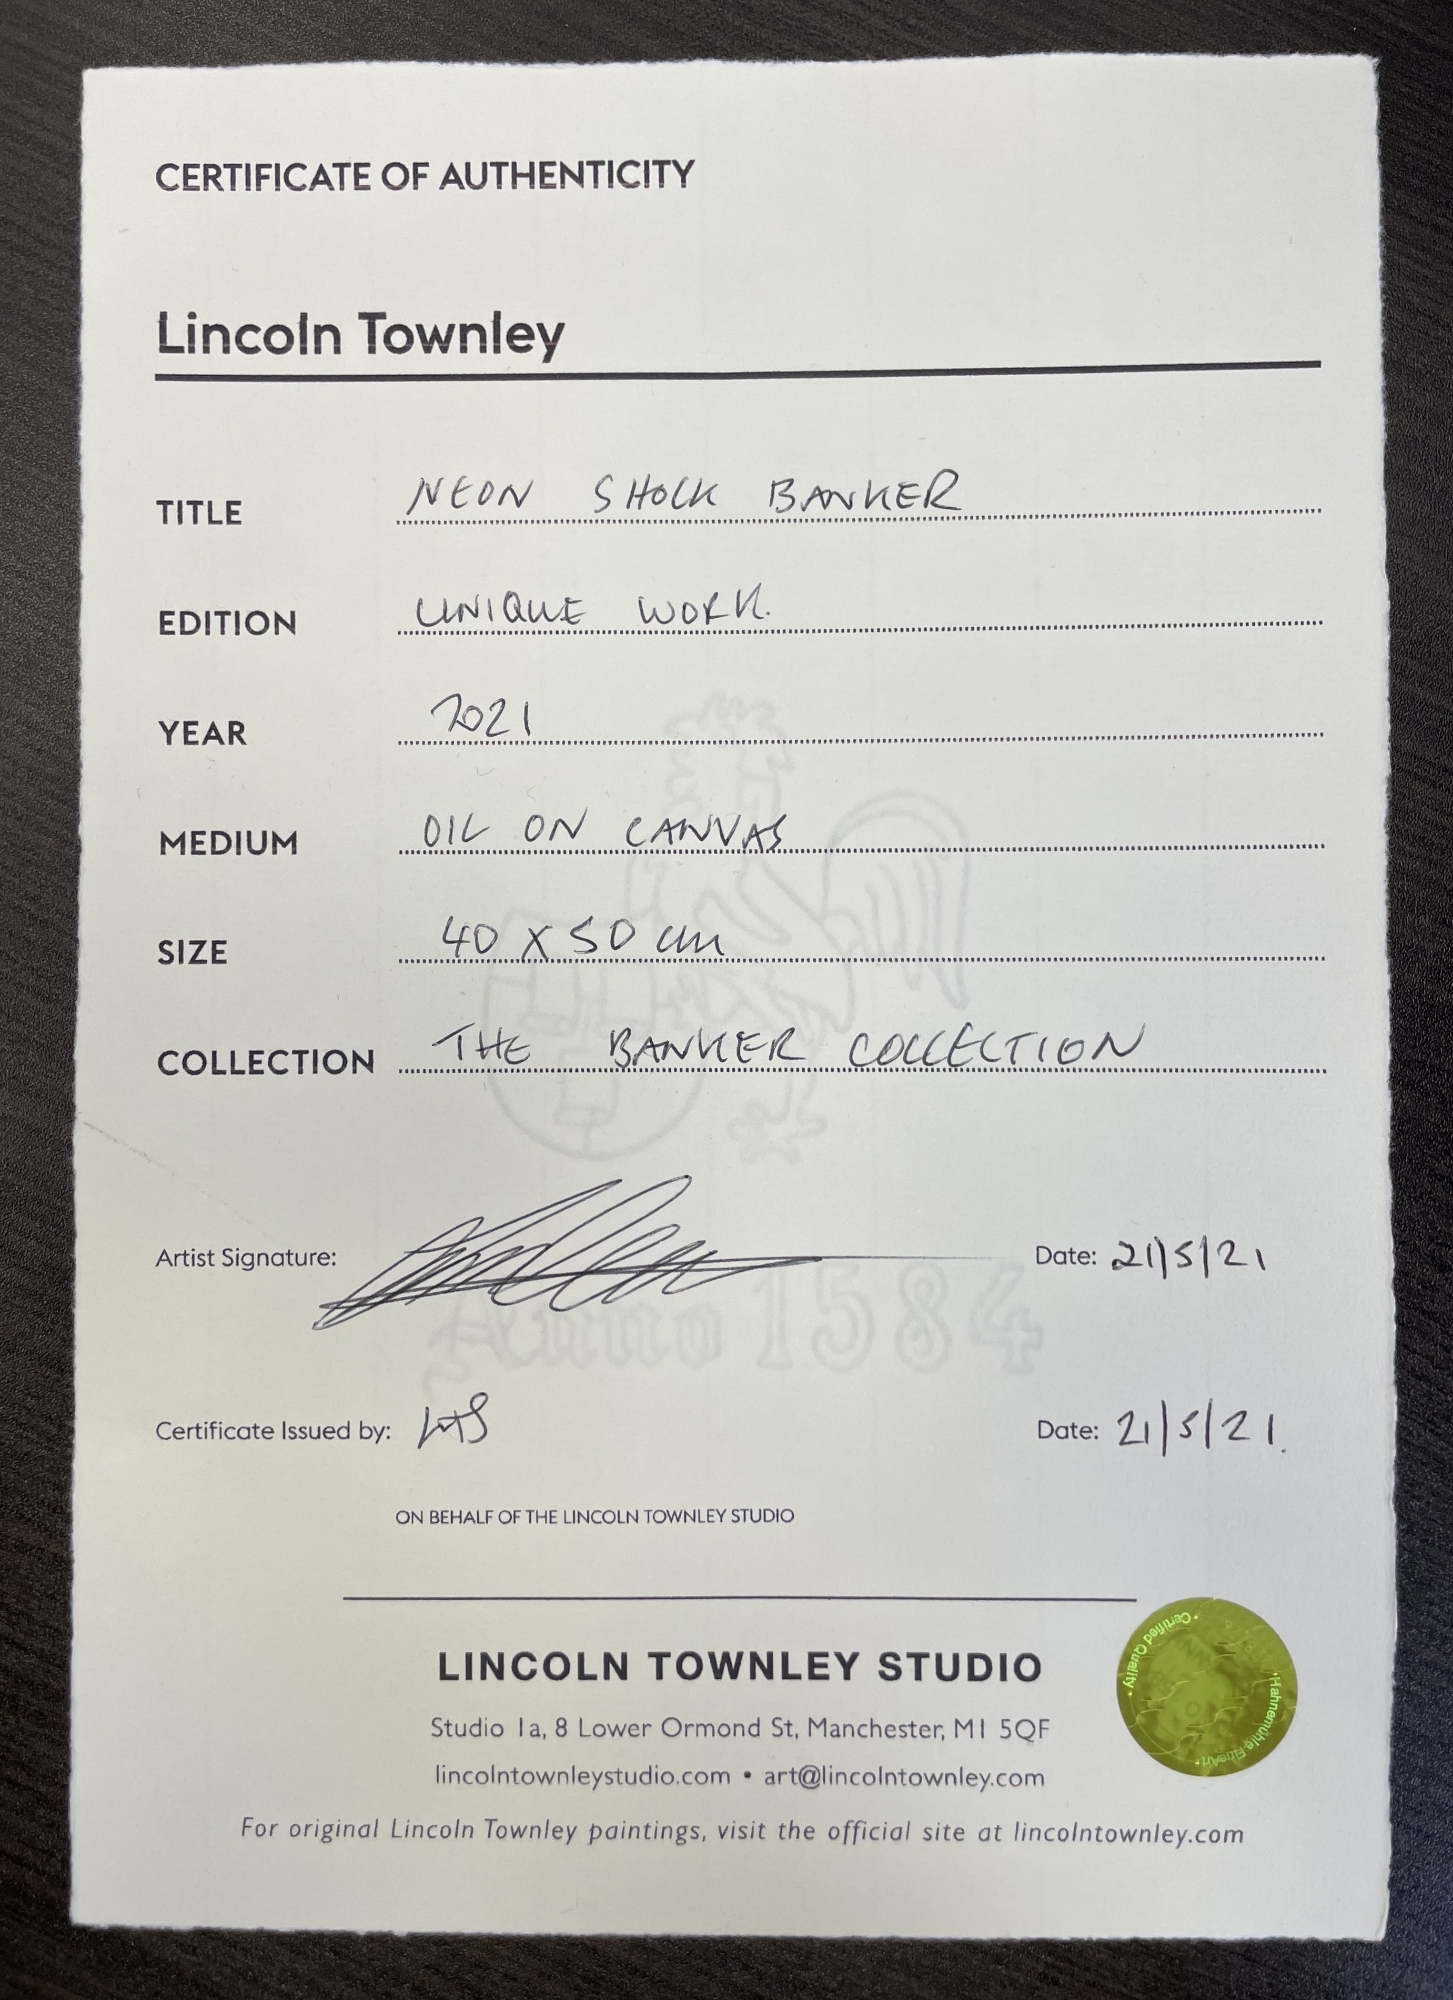 CERTIFICATE OF AUTHENTICITY
Lincoln Townley
TITLE NEON SHOCK BANKER
EDITION UNIQUE WORK.
YEAR 2021
MEDIUM OIL ON CANVAS
SIZE 40 X 50 cm
COLLECTION THE BANKER COLLECTION
Artist Signature: Date: 21/5/21
Anno 1584
Certificate Issued by: LTS Date: 21/5/21.
ON BEHALF OF THE LINCOLN TOWNLEY STUDIO
LINCOLN TOWNLEY STUDIO
Studio 1a, 8 Lower Ormond St, Manchester, M1 5QF
lincolntownleystudio.com • art@lincolntownley.com
For original Lincoln Townley paintings, visit the official site at lincolntownley.com
• Certified Quality •
Hahnemühle FineArt